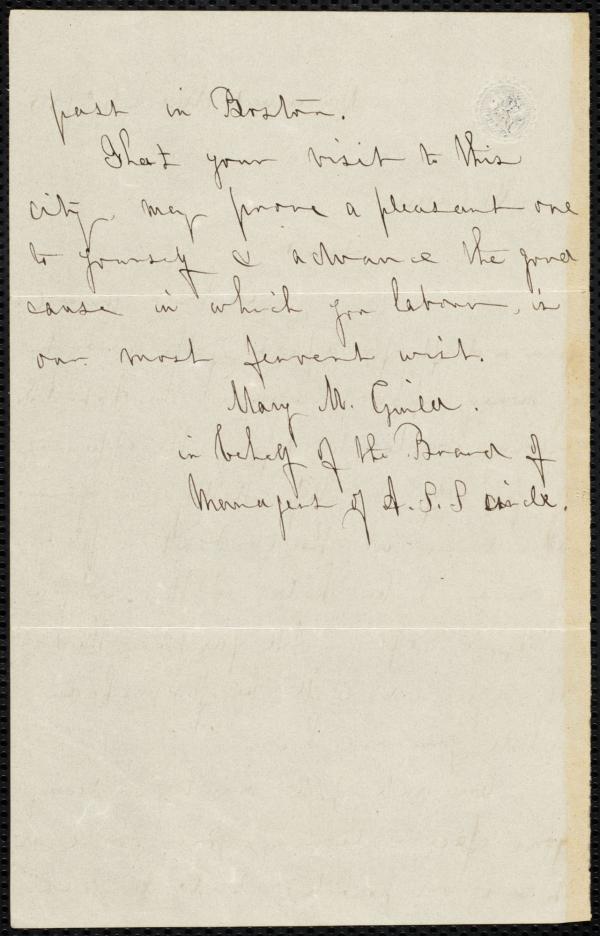 past in Boston.
That your visit to this
city, may prove a pleasant one
to yourself & advance the good
cause in which you labour, is
our most fervent wish.
Mary M. Guild.
in behalf of the Board of
Managers of A. S. S circle.